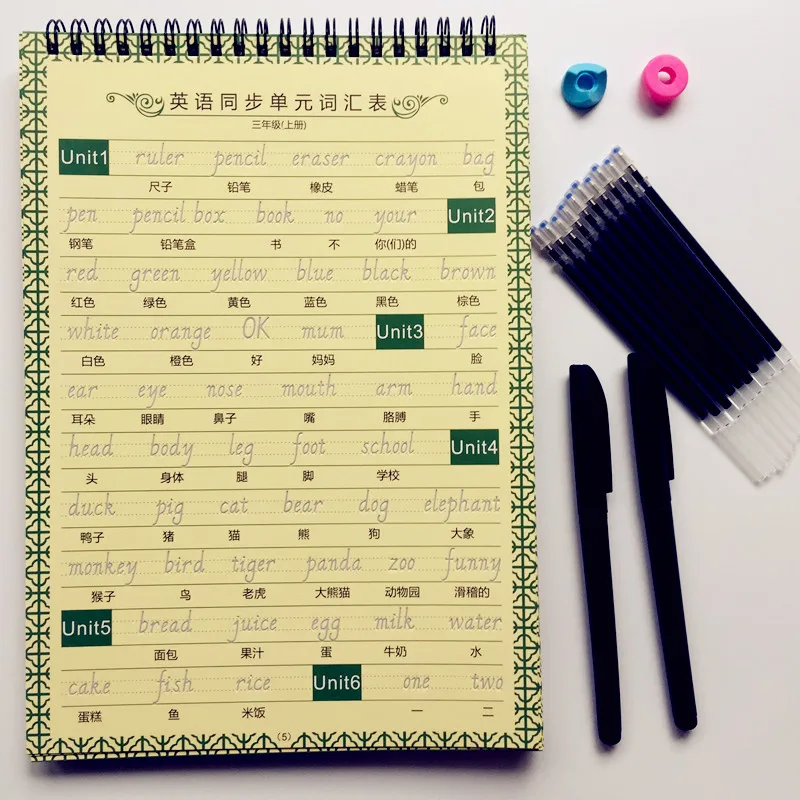 英语同步单元词汇表
三年级(上册)
Unit1 ruler pencil eraser crayon bag
尺子 铅笔 橡皮 蜡笔 包
pen pencil box book no your Unit2
钢笔 铅笔盒 书 不 你(们)的
red green yellow blue black brown
红色 绿色 黄色 蓝色 黑色 棕色
white orange OK mum Unit3 face
白色 橙色 好 妈妈 脸
ear eye nose mouth arm hand
耳朵 眼睛 鼻子 嘴 胳膊 手
head body leg foot school Unit4
头 身体 腿 脚 学校
duck pig cat bear dog elephant
鸭子 猪 猫 熊 狗 大象
monkey bird tiger panda zoo funny
猴子 鸟 老虎 大熊猫 动物园 滑稽的
Unit5 bread juice egg milk water
面包 果汁 蛋 牛奶 水
cake fish rice Unit6 one two
蛋糕 鱼 米饭 一 二
(5)